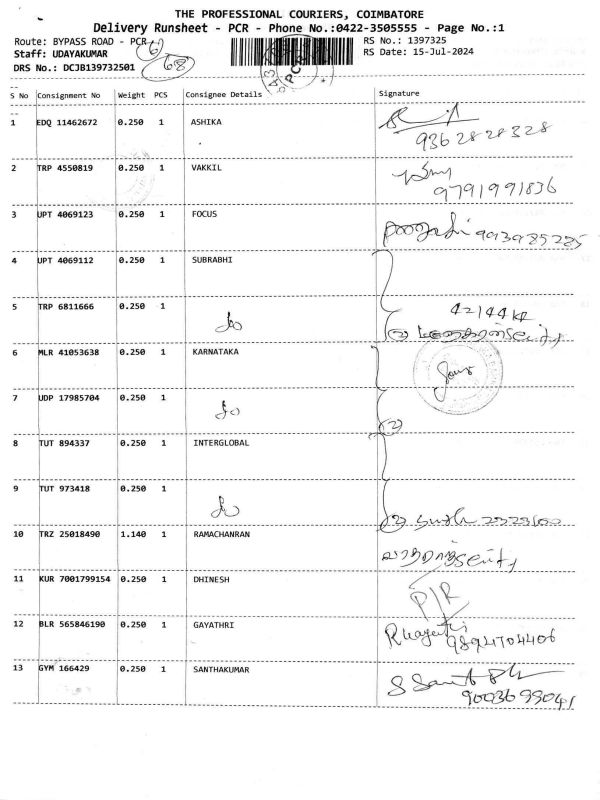 THE PROFESSIONAL COURIERS, COIMBATORE
Delivery Runsheet - PCR - Phone No.:0422-3505555 - Page No.:1
Route: BYPASS ROAD - PCR
RS No.: 1397325
Staff: UDAYAKUMAR
RS Date: 15-Jul-2024
DRS No.: DCJB139732501
68
PCR
S No Consignment No Weight PCS Consignee Details Signature
1 EDQ 11462672 0.250 1 ASHIKA
9362828328
2 TRP 4550819 0.250 1 VAKKIL
9791991836
3 UPT 4069123 0.250 1 FOCUS
993985285
4 UPT 4069112 0.250 1 SUBRABHI
5 TRP 6811666 0.250 1
6 MLR 41053638 0.250 1 KARNATAKA
7 UDP 17985704 0.250 1
(2)
8 TUT 894337 0.250 1 INTERGLOBAL
9 TUT 973418 0.250 1
10 TRZ 25018490 1.140 1 RAMACHANRAN
11 KUR 7001799154 0.250 1 DHINESH
P/R
12 BLR 565846190 0.250 1 GAYATHRI
9894704406
13 GYM 166429 0.250 1 SANTHAKUMAR
9003699041